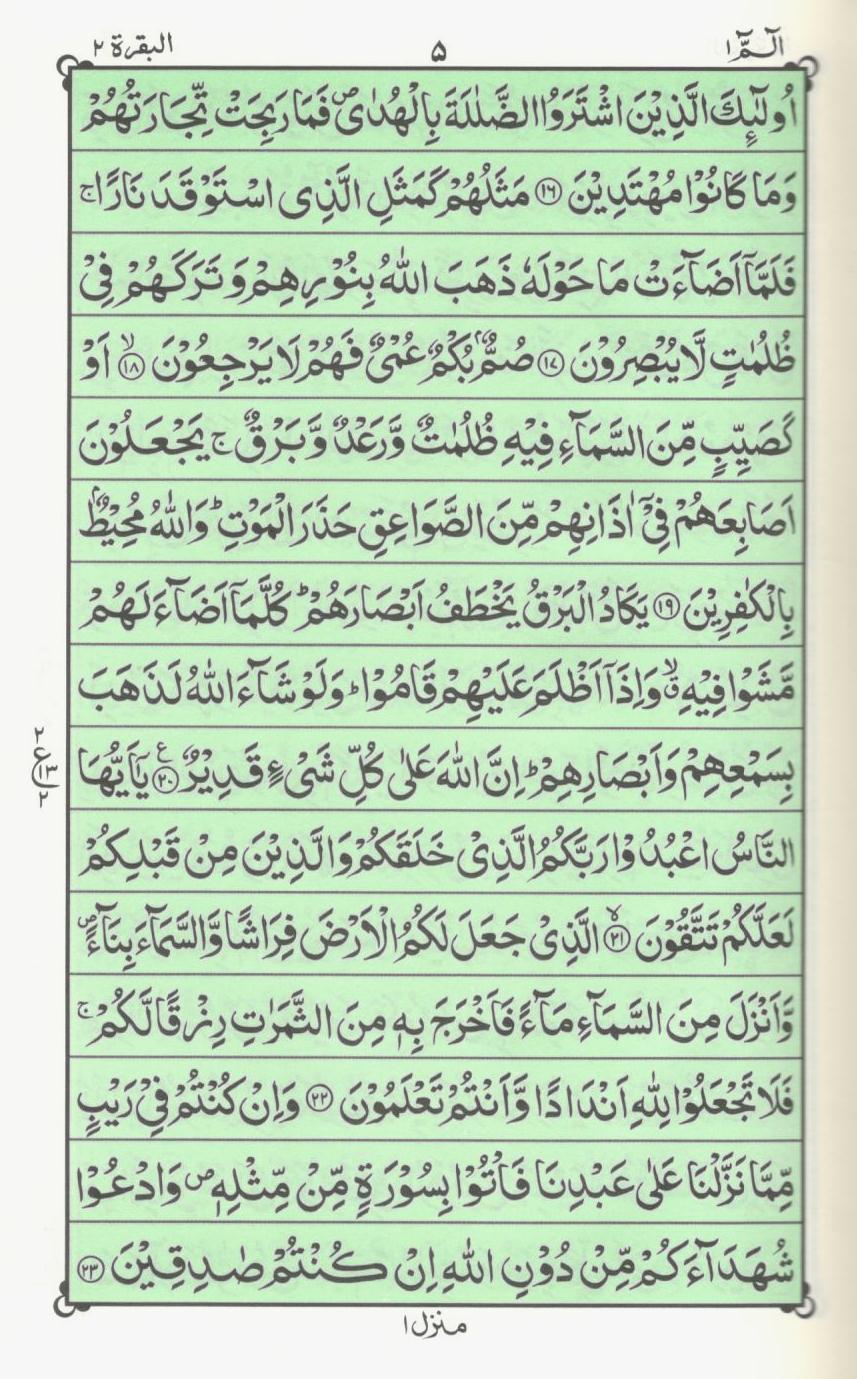 الٓـمّٓ ١
٥
البقرة ٢
اُولٰٓئِكَ الَّذِیْنَ اشْتَرَوُا الضَّلٰلَةَ بِالْهُدٰی۪ فَمَا رَبِحَتْ تِّجَارَتُهُمْ
وَمَا كَانُوْا مُهْتَدِیْنَ ﴿١٦﴾ مَثَلُهُمْ كَمَثَلِ الَّذِی اسْتَوْقَدَ نَارًاۚ
فَلَمَّاۤ اَضَآءَتْ مَا حَوْلَهٗ ذَهَبَ اللّٰهُ بِنُوْرِهِمْ وَ تَرَكَهُمْ فِیْ
ظُلُمٰتٍ لَّا یُبْصِرُوْنَ ﴿١٧﴾ صُمٌّۢ بُكْمٌ عُمْیٌ فَهُمْ لَا یَرْجِعُوْنَ ﴿١٨﴾ۙ اَوْ
كَصَیِّبٍ مِّنَ السَّمَآءِ فِیْهِ ظُلُمٰتٌ وَّرَعْدٌ وَّبَرْقٌ ۚ یَجْعَلُوْنَ
اَصَابِعَهُمْ فِیْۤ اٰذَانِهِمْ مِّنَ الصَّوَاعِقِ حَذَرَ الْمَوْتِؕ وَاللّٰهُ مُحِیْطٌۢ
بِالْكٰفِرِیْنَ ﴿١٩﴾ یَكَادُ الْبَرْقُ یَخْطَفُ اَبْصَارَهُمْؕ كُلَّمَاۤ اَضَآءَ لَهُمْ
مَّشَوْا فِیْهِۙۗ وَاِذَاۤ اَظْلَمَ عَلَیْهِمْ قَامُوْاؕ وَلَوْ شَآءَ اللّٰهُ لَذَهَبَ
بِسَمْعِهِمْ وَاَبْصَارِهِمْؕ اِنَّ اللّٰهَ عَلٰی كُلِّ شَیْءٍ قَدِیْرٌ ﴿٢٠﴾ع یٰۤاَیُّهَا
٢
ع
١٣
٢
النَّاسُ اعْبُدُوْا رَبَّكُمُ الَّذِیْ خَلَقَكُمْ وَالَّذِیْنَ مِنْ قَبْلِكُمْ
لَعَلَّكُمْ تَتَّقُوْنَ ﴿٢١﴾ۙ الَّذِیْ جَعَلَ لَكُمُ الْاَرْضَ فِرَاشًا وَّالسَّمَآءَ بِنَآءً۪
وَّاَنْزَلَ مِنَ السَّمَآءِ مَآءً فَاَخْرَجَ بِهٖ مِنَ الثَّمَرٰتِ رِزْقًا لَّكُمْۚ
فَلَا تَجْعَلُوْا لِلّٰهِ اَنْدَادًا وَّاَنْتُمْ تَعْلَمُوْنَ ﴿٢٢﴾ وَاِنْ كُنْتُمْ فِیْ رَیْبٍ
مِّمَّا نَزَّلْنَا عَلٰی عَبْدِنَا فَاْتُوْا بِسُوْرَةٍ مِّنْ مِّثْلِهٖ۪ وَادْعُوْا
شُهَدَآءَكُمْ مِّنْ دُوْنِ اللّٰهِ اِنْ كُنْتُمْ صٰدِقِیْنَ ﴿٢٣﴾
منزل ١